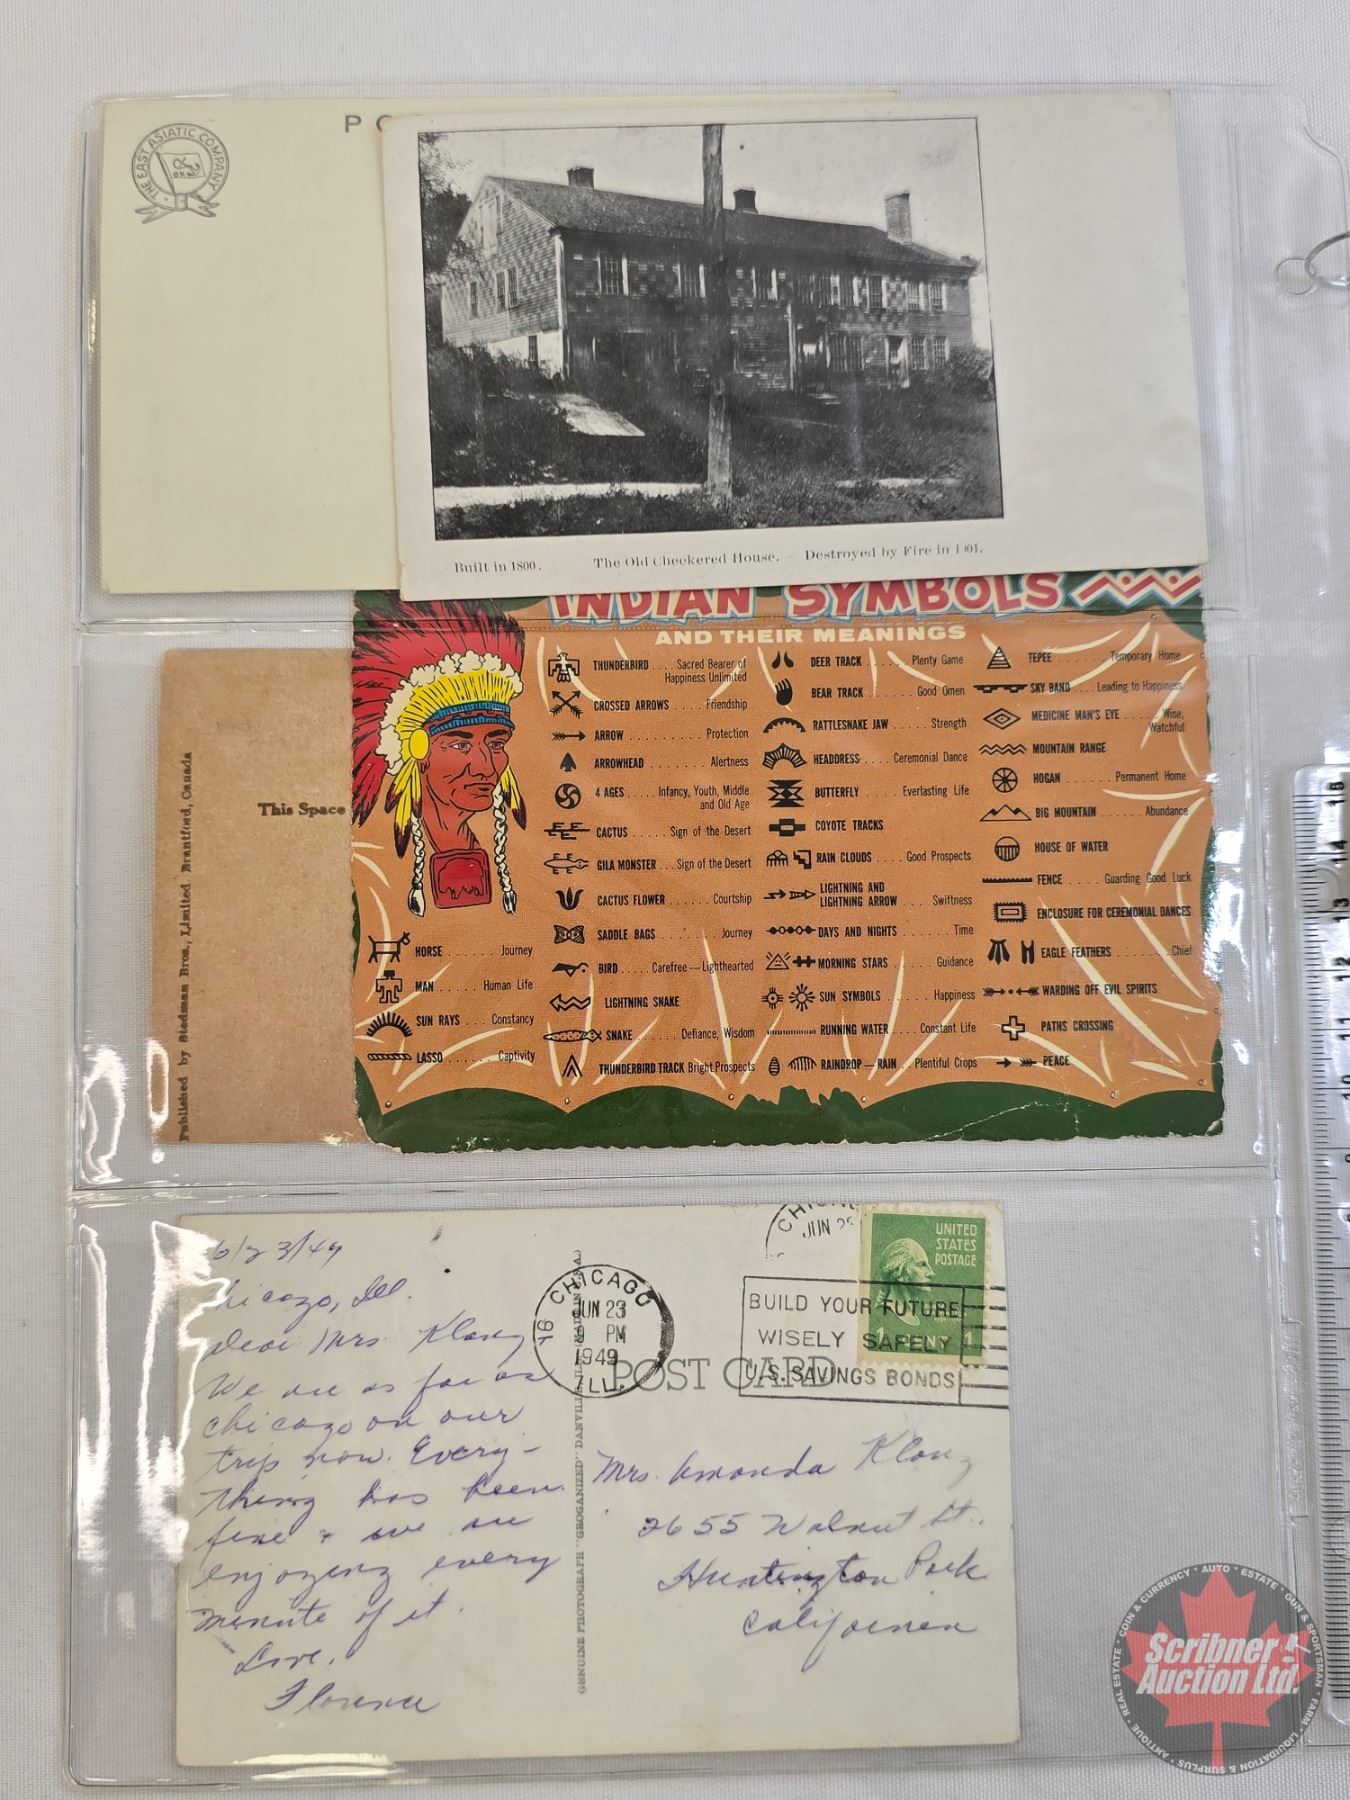 THE EAST ASIATIC COMPANY
Built in 1800.
The Old Checkered House. – Destroyed by Fire in 1901.
INDIAN SYMBOLS
AND THEIR MEANINGS
THUNDERBIRD .... Sacred Bearer of
Happiness Unlimited
CROSSED ARROWS ..... Friendship
ARROW .......... Protection
ARROWHEAD ........ Alertness
4 AGES ..... Infancy, Youth, Middle
and Old Age
CACTUS ...... Sign of the Desert
GILA MONSTER ... Sign of the Desert
CACTUS FLOWER ...... Courtship
SADDLE BAGS ........ Journey
BIRD ..... Carefree — Lighthearted
LIGHTNING SNAKE
SNAKE ..... Defiance, Wisdom
THUNDERBIRD TRACK Bright Prospects
HORSE ........ Journey
MAN ...... Human Life
SUN RAYS ... Constancy
LASSO ....... Captivity
DEER TRACK ...... Plenty Game
BEAR TRACK ....... Good Omen
RATTLESNAKE JAW ..... Strength
HEADDRESS ... Ceremonial Dance
BUTTERFLY ... Everlasting Life
COYOTE TRACKS
RAIN CLOUDS .... Good Prospects
LIGHTNING AND
LIGHTNING ARROW ... Swiftness
DAYS AND NIGHTS ....... Time
MORNING STARS ..... Guidance
SUN SYMBOLS ..... Happiness
RUNNING WATER ... Constant Life
RAINDROP — RAIN .. Plentiful Crops
TEPEE ........ Temporary Home
SKY BAND .... Leading to Happiness
MEDICINE MAN'S EYE .... Wise,
Watchful
MOUNTAIN RANGE
HOGAN ....... Permanent Home
BIG MOUNTAIN ...... Abundance
HOUSE OF WATER
FENCE ..... Guarding Good Luck
ENCLOSURE FOR CEREMONIAL DANCES
EAGLE FEATHERS ........ Chief
WARDING OFF EVIL SPIRITS
PATHS CROSSING
PEACE
This Space
Published by Stedman Bros., Limited Brantford, Canada
6/23/49
Chicago, Ill.
Dear Mrs Klang
We are as far as
Chicago on our
trip now. Every-
thing has been
fine & we are
enjoying every
minute of it.
Love,
Florence
CHICAGO
JUN 23
PM
1949
ILL.
JUN
UNITED
STATES
POSTAGE
BUILD YOUR FUTURE
WISELY SAFELY
U.S. SAVINGS BONDS
POST CARD
GENUINE PHOTOGRAPH "GROGANIZED" DANVILLE
Mrs. Amanda Klang
2655 Walnut St.,
Huntington Park
California
14
13
12
11
10
COIN & CURRENCY · AUTO · ESTATE · GUN & SPORTSMAN · FARM · LIQUIDATION & SURPLUS · ANTIQUE · REAL ESTATE
Scribner
Auction Ltd.